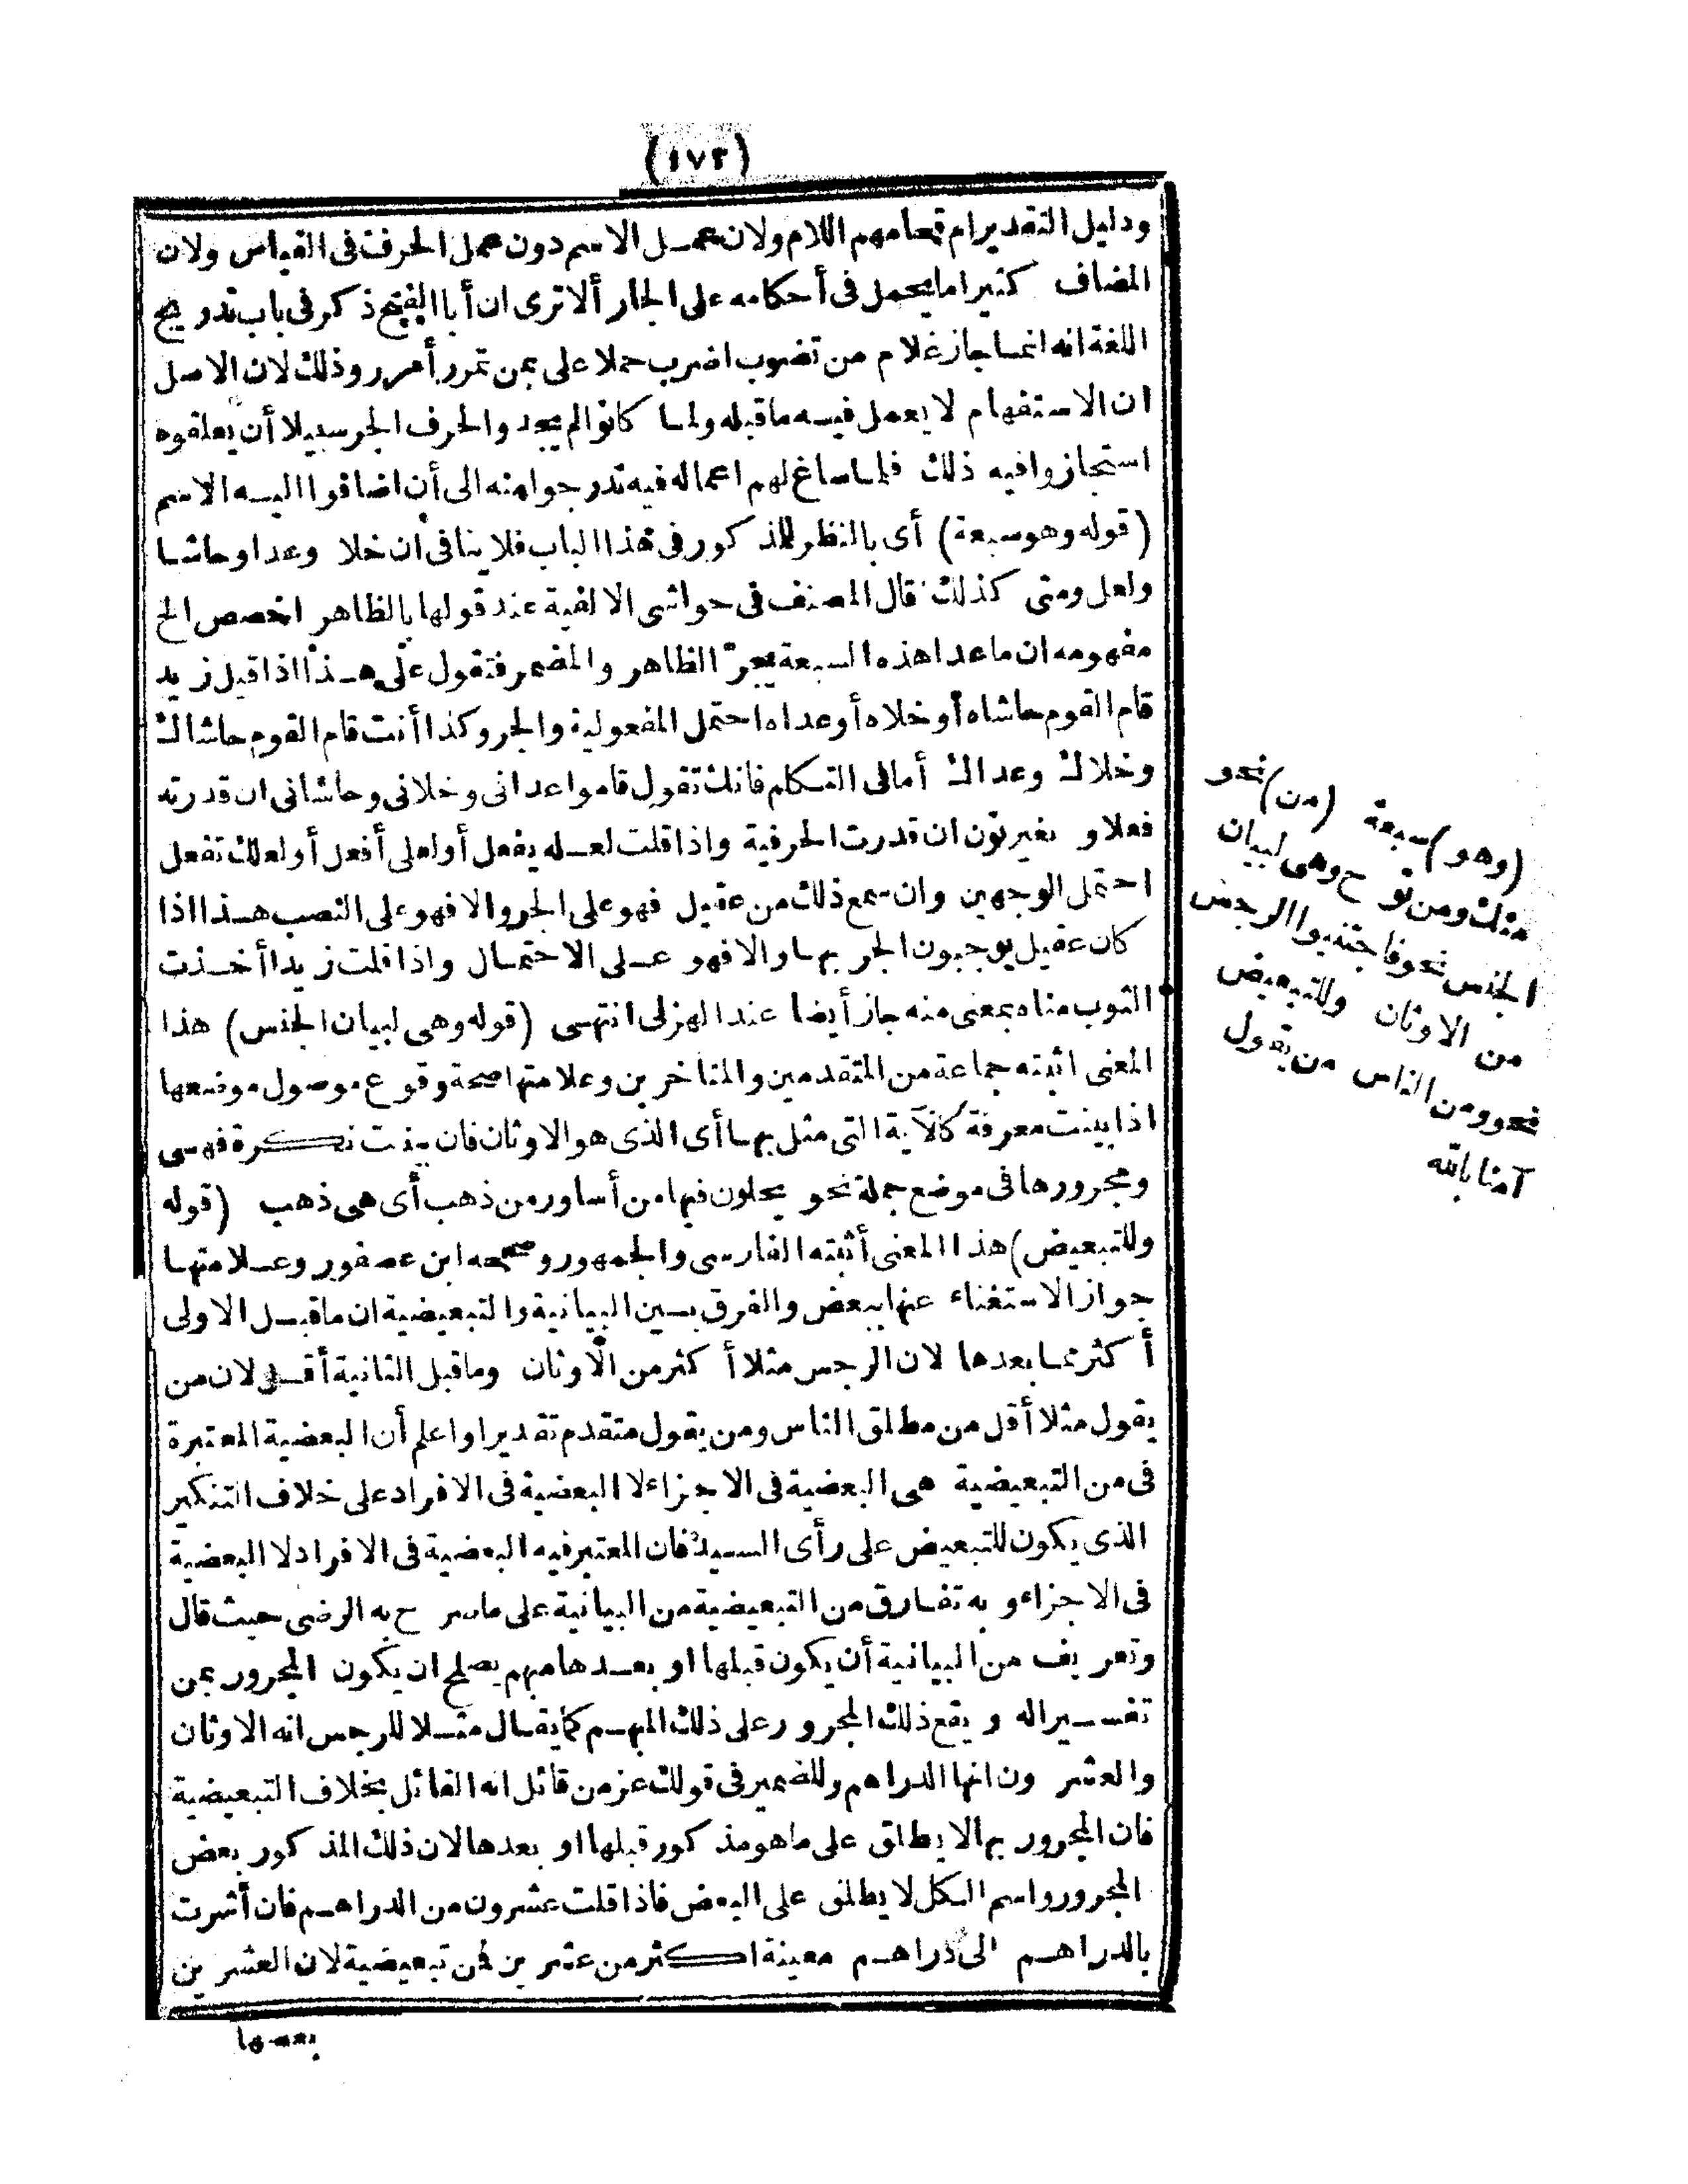 (١٧٣)
ودليل التقديرام قحامهم اللام ولان عمل الاسم دون عمل الحرف فى القياس ولان
المضاف كثيراما يحمل فى أحكامه على الجار ألا ترى ان أبا الفتح ذكر فى باب تدريج
اللغة انه انما جاز غلام من تضرب اضرب حملا على بمن تمرر أمرر وذلك لان الاصل
ان الاستفهام لا يعمل فيه ماقبله ولما كانوا لم يجدوا لحرف الجر سبيلا أن يعلقوه
استجازوا فيه ذلك فلما ساغ لهم اعماله فيه تدرجوا منه الى أن اضافوا اليه الاسم
(قوله وهو سبعة) أى بالنظر للمذكور فى هذا الباب فلا ينافى ان خلا وعدا وحاشا
ولعل ومتى كذلك قال المصنف فى حواشى الالفية عند قولها بالظاهر اخصص الخ
مفهومه ان ماعدا هذه السبعة يجر الظاهر والمضمر فتقول على هذا اذا قيل زيد
قام القوم حاشاه أو خلاه أو عداه احتمل المفعولية والجر وكذا أنت قام القوم حاشاك
وخلاك وعداك أما فى التكلم فانك تقول قاموا عدانى وخلانى وحاشانى ان قدرته
فعلا و بغير نون ان قدرت الحرفية واذا قلت لعله يفعل أو لعلى أفعل أو لعلك تفعل
احتمل الوجهين وان سمع ذلك من عقيل فهو على الجر والا فهو على النصب هذا اذا
كان عقيل يوجبون الجر بها والا فهو على الاحتمال واذا قلت زيدا أخذت
الثوب متاه بمعنى منه جاز أيضا عند الهزلى انتهى (قوله وهى لبيان الجنس) هذا
المعنى اثبته جماعة من المتقدمين والمتاخرين وعلامتها صحة وقوع موصول موضعها
اذا بينت معرفة كالآية التى مثل بها أى الذى هو الاوثان فان بينت نكرة فهى
ومجرورها فى موضع جملة نحو يحلون فيها من أساور من ذهب أى هى ذهب (قوله
وللتبعيض) هذا المعنى أثبته الفارسى والجمهور وصححه ابن عصفور وعلامتها
جواز الاستغناء عنها ببعض والفرق بين البيانية والتبعيضية ان ماقبل الاولى
أكثر مما بعدها لان الرجس مثلا أكثر من الاوثان وماقبل الثانية أقل لان من
يقول مثلا أقل من مطلق الناس ومن يقول متقدم تقديرا واعلم أن البعضية المعتبرة
فى من التبعيضية هى البعضية فى الاجزاء لا البعضية فى الافراد على خلاف التنكير
الذى يكون للتبعيض على رأى السيد فان المعتبر فيه البعضية فى الافراد لا البعضية
فى الاجزاء و به تفارق من التبعيضية من البيانية على ماصرح به الرضى حيث قال
وتعريف من البيانية أن يكون قبلها او بعدها مبهم يصلح ان يكون المجرور بمن
تفسيرا له و يقع ذلك المجرور على ذلك المبهم كما يقال مثلا للرجس انه الاوثان
والعشرون انها الدراهم وللضمير فى قولك عز من قائل انه القائل بخلاف التبعيضية
فان المجرور بها لا يطلق على ماهو مذكور قبلها او بعدها لان ذلك المذكور بعض
المجرور واسم الكل لا يطلق على البعض فاذا قلت عشرون من الدراهم فان أشرت
بالدراهم الى دراهم معينة اكثر من عشرين فمن تبعيضية لان العشرين
بعضها
(وهو) سبعة (من) نحو
منك ومن نوح وهى لبيان
الجنس نحو فاجتنبوا الرجس
من الاوثان وللتبعيض
نحو ومن الناس من يقول
آمنا بالله